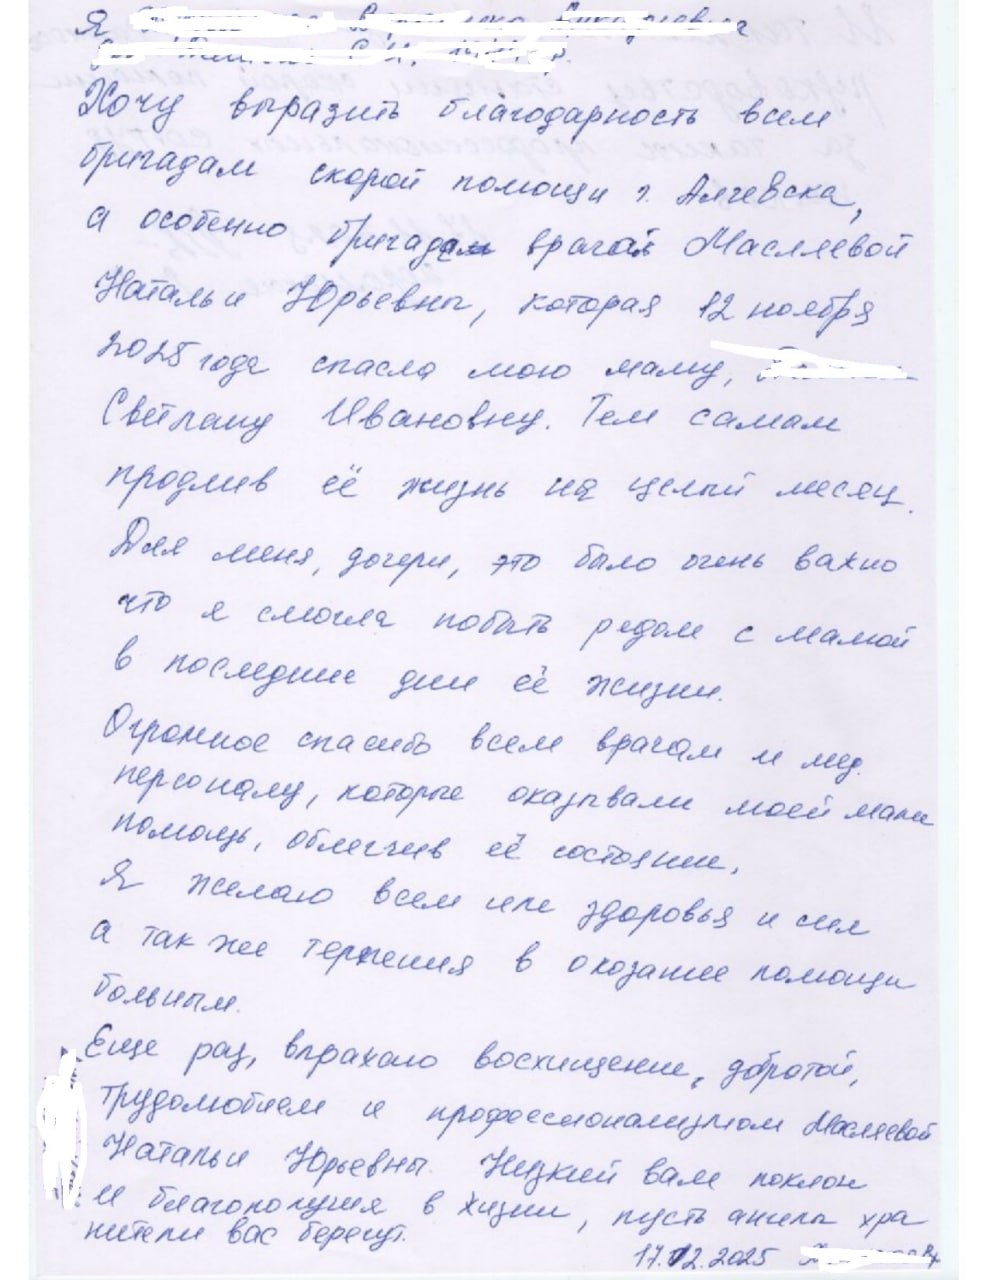 Я
Хочу выразить благодарность всем
бригадам скорой помощи г. Алчевска,
а особенно бригадам врача Масляевой
Натальи Юрьевны, которая 12 ноября
2025 года спасла мою маму,
Светлану Ивановну. Тем самам
продлив её жизнь на целый месяц.
Для меня, дочери, это было очень важно
что я смогла побыть рядом с мамой
в последние дни её жизни.
Огромное спасибо всем врачам и мед.
персоналу, которые оказывали моей маме
помощь, облегчив её состояние.
Я желаю всем им здоровья и сил
а так же терпения в оказание помощи
больным.
Еще раз, выражаю восхищение, добротой,
трудолюбием и профессионализмом Масляевой
Натальи Юрьевны. Низкий вам поклон
и благополучия в жизни, пусть ангелы хра
нители вас берегут.
17.12.2025